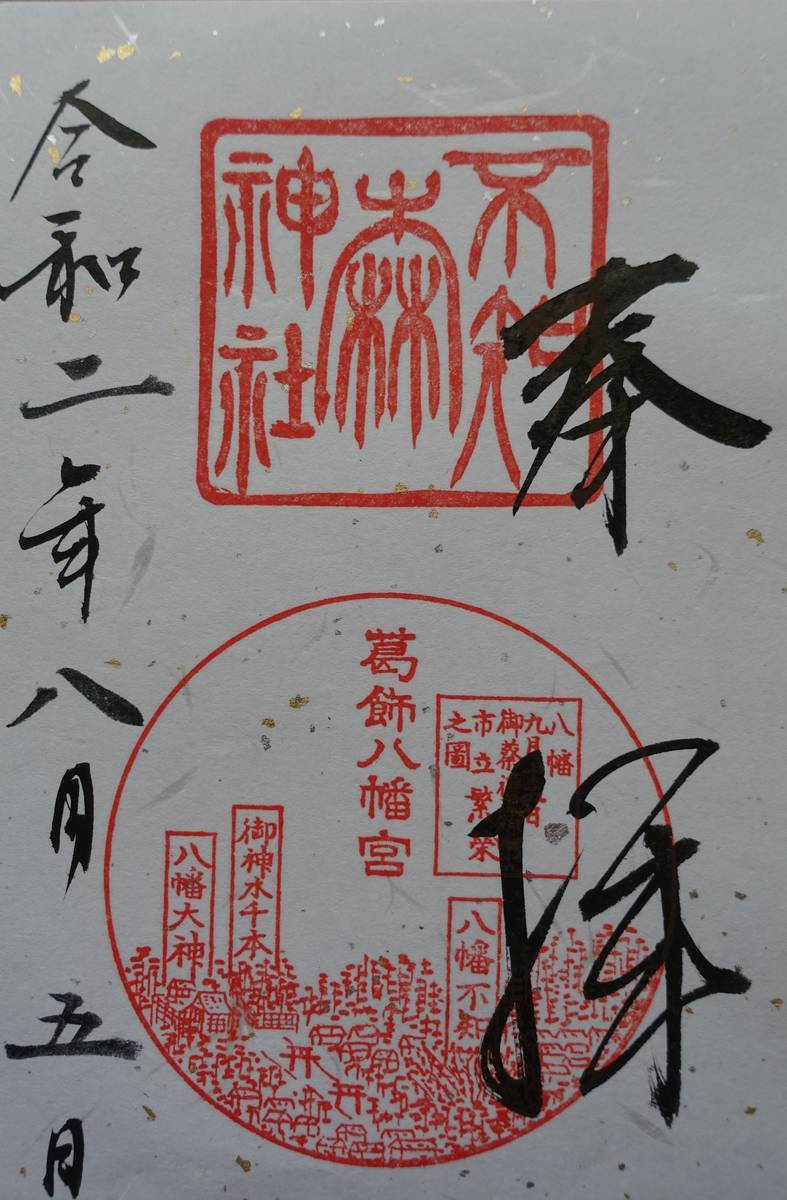 奉拝
不知
森
神社
葛飾八幡宮
八幡
御祭
市立繁栄
之圖
八幡不知
御神木千本
八幡大神
令和二年八月五日